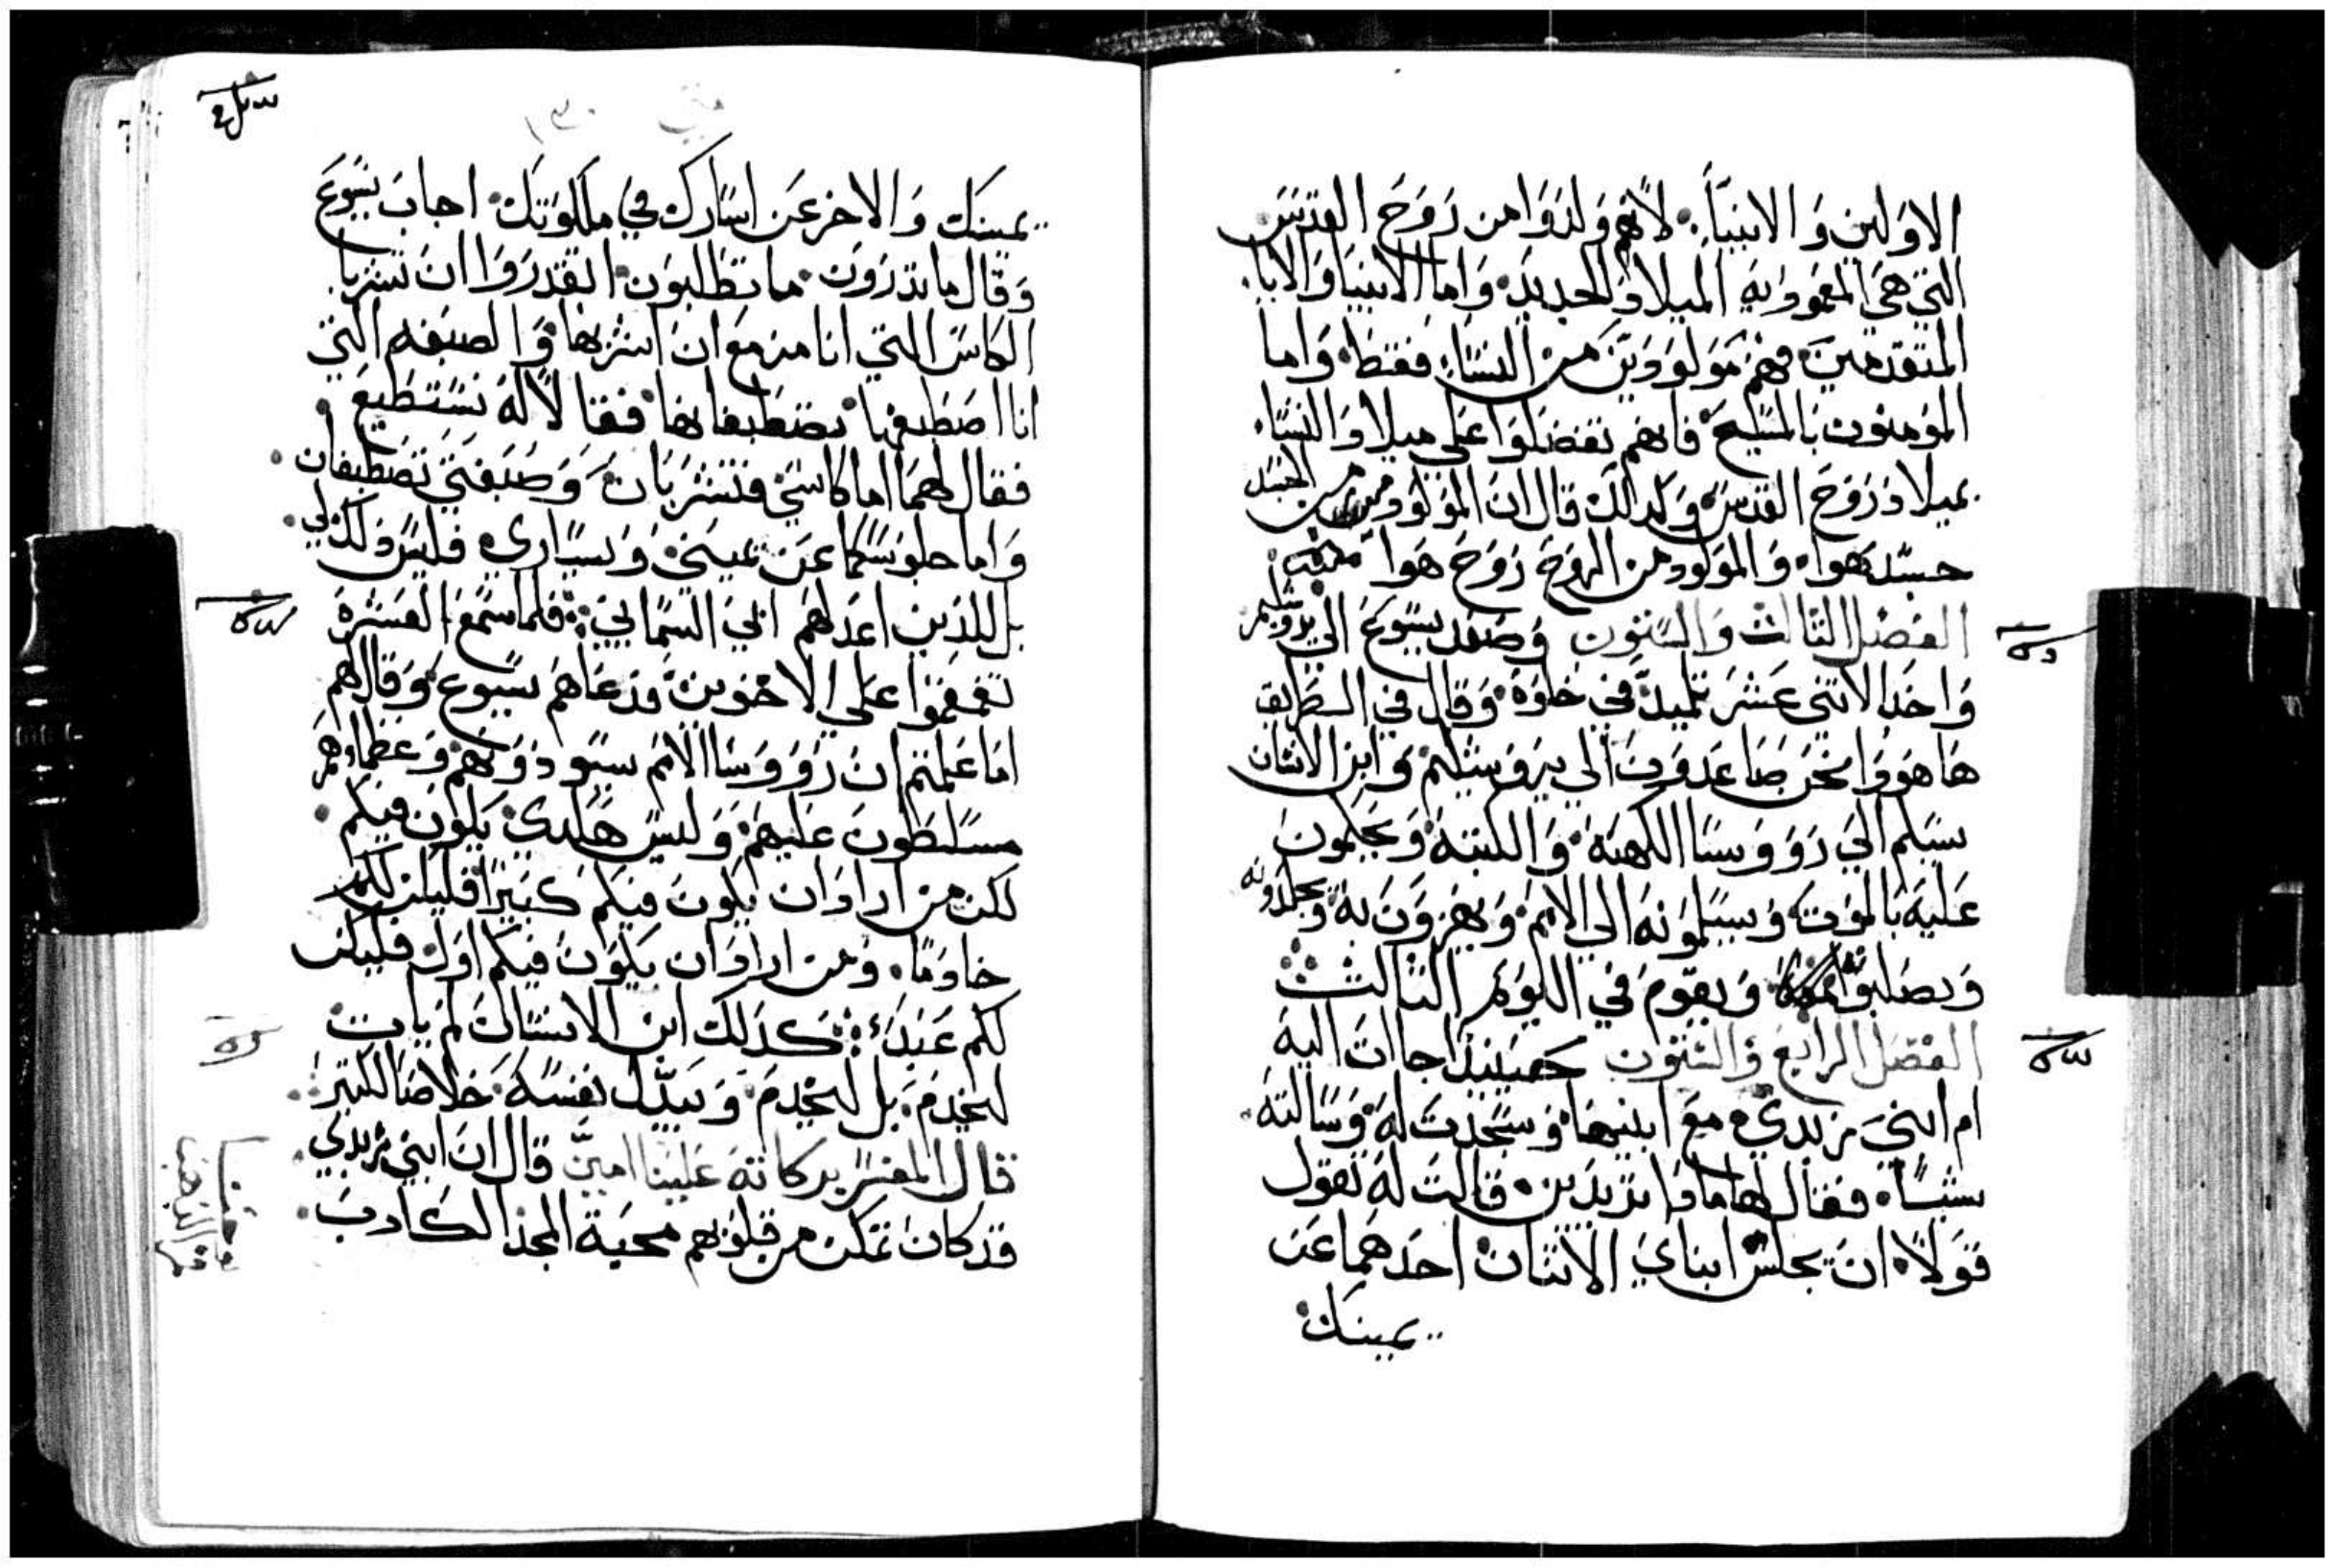 الاولين والانبيا. لانهم ولدوا من روح القدس
التي هي المعمودية الميلاد الجديد. واما الانبيا والابا.
المتقدمين فهم مولودين من النسا. فقط. واما
المومنون بالمسيح فانهم تفضلوا علي ميلاد النسا.
بميلاد روح القدس وكدالك قال ان المولود من الجسد
جسد هوا. والمولود من الروح روح هوا
الفصل الثالث والستون وصعد يسوع الي يروشليم
واخد الاثني عشر تلميد في خلوة. وقال في الطريق
ها هودا نحن صاعدون الي يروشليم وابن الانسان
سيسلم الي روووسا الكهنة. والكتبة. ويحكمون
عليه بالموت. ويسلمونه الي الامم. ويهزون به. ويجلدونه
ويصلبونه ويقوم في اليوم الثالث
الفصل الرابع والستون حينيد جاات اليه
ام ابني زبدي. مع ابنيها. وسجدت له. وسالته.
شيئا. فقال لها مادا تريدين. قالت له تقول
قولا. ان يجلس ابناي الاثنان احدهما عن
يمينك
متي
يمينك والاخر عن يسارك في ملكوتك. اجاب يسوع
وقال ما تدرون. ما تطلبون. اتقدروا ان تشربا.
الكاس التي انا مزمع ان اشربها. والصبغه التي
انا اصطبغها. تصطبغانها. فقالا له نستطيع
فقال لهما اما كاسي. فتشربان. وصبغتي تصطبغان.
واما جلوسكما عن يميني. ويساري. فليس دلك لي.
بل للدين اعد لهم ابي السمايي. فلما سمع العشرة
تقمقموا علي الاخوين. فدعاهم يسوع. وقال لهم
اما علمتم ان روووسا الامم يسودونهم. وعظماوهم
مسلطون عليهم. وليس هكدي. يكون فيكم.
لكن من اراد ان يكون فيكم كبيرا. فليكن لكم
خادما. ومن اراد ان يكون فيكم اول فليكن
لكم عبدا. كدلك ابن الانسان لم يات
ليخدم. بل ليخدم. ويبدل نفسه. خلاصا لكثير.
قال المفسر بركاته علينا امين قال ان ابني زبدي.
قد كان تمكن من قلوبهم محبة المجد الكادب.